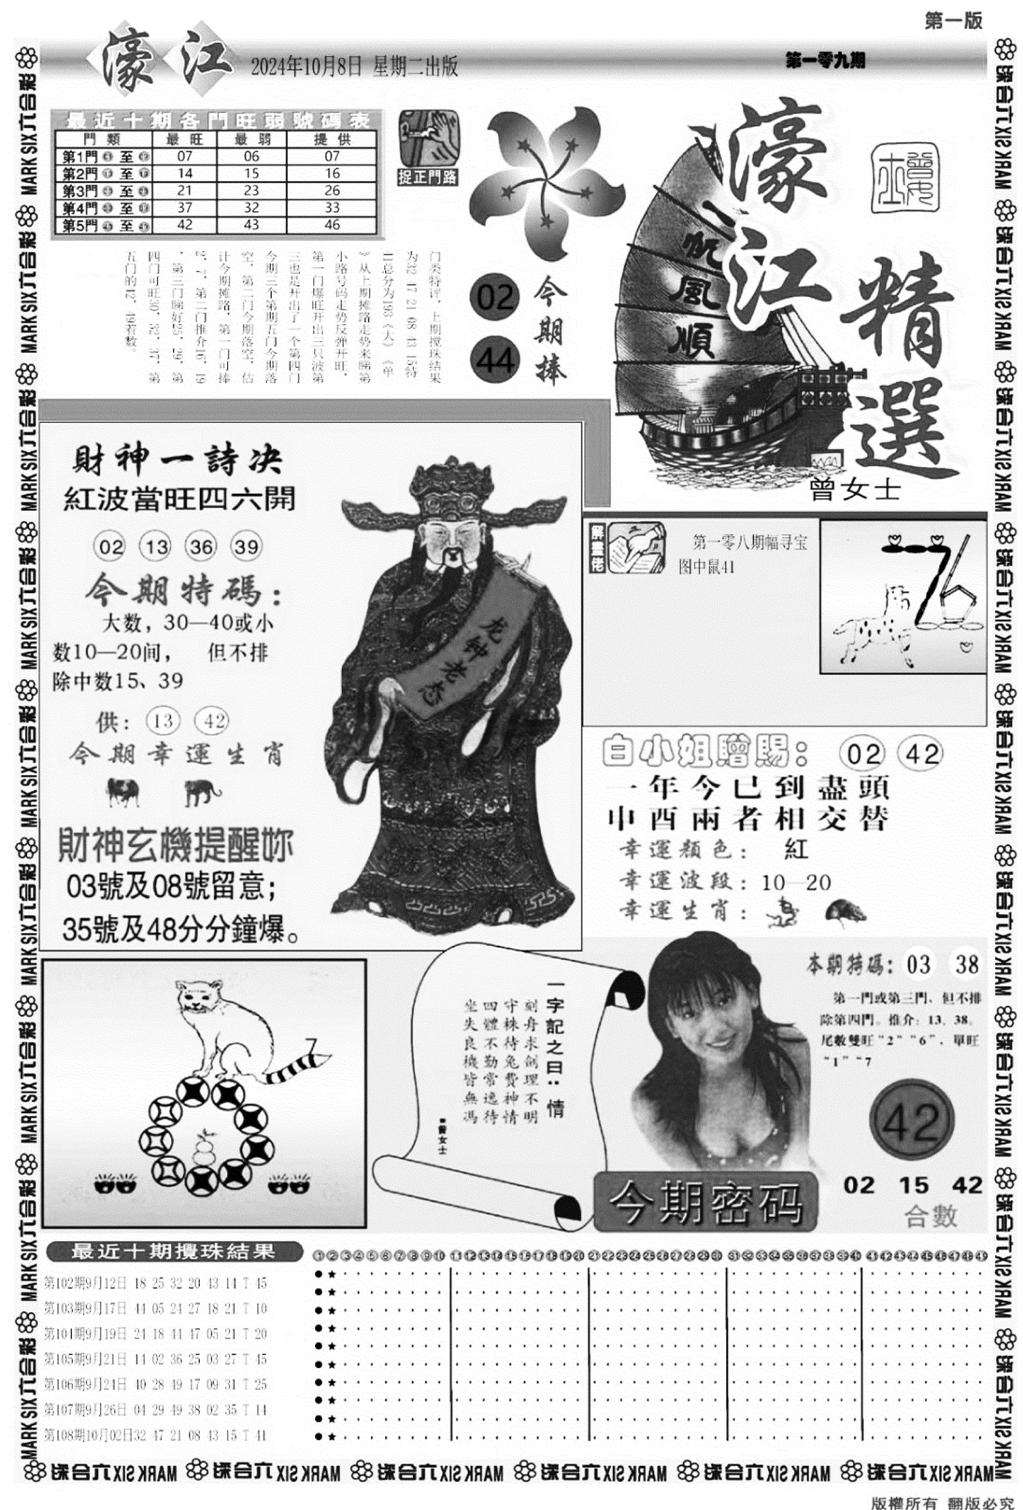 第一版
濠江 2024年10月8日 星期二出版 第一零九期
最近十期各門旺弱號碼表
門類 最旺 最弱 提供
第1門 至 07 06 07
第2門 至 14 15 16
第3門 至 21 23 26
第4門 至 37 32 33
第5門 至 42 43 46
捉正門路
02
44
今期捧
一帆風順
濠江
精選
曾女士
门类特评，上期搅珠结果
为32 47 21 08 43 15特
41总分为
》从上期摊路走势来睇第
小路号码走势反弹开旺，
第一门爆旺开出三只波第
三也是开出了一个第四门
今期三个第期五门今期落
空，第二门今期落空，估
计今期摊路，第一门可捧
2，7，第二门推介16，19
，第三门睇好25，29，第
四门可旺30，32，37，第
五门的42，49着数。
財神一詩决
紅波當旺四六開
02 13 36 39
今期特碼：
大数，30—40或小
数10—20间， 但不排
除中数15、39
供： 13 42
今期幸運生肖
財神玄機提醒妳
03號及08號留意；
35號及48分分鐘爆。
龙钟老态
解畫佬
第一零八期幅寻宝
图中鼠41
白小姐贈賜： 02 42
一年今已到盡頭
申酉兩者相交替
幸運顏色： 紅
幸運波段：10—20
幸運生肖：
7
一字記之曰：情
刻舟求劍理不明
守株待兔費神情
四體不勤常逸待
坐失良機皆無馮
■曾女士
本期特碼：03 38
第一門或第三門、但不排
除第四門。推介：13、38。
尾數雙旺“2”“6”、單旺
“1”“7
42
今期密码
02 15 42
合數
最近十期攪珠結果
①②③④⑤⑥⑦⑧⑨⑩ ⑪⑫⑬⑭⑮⑯⑰⑱⑲⑳ ㉑㉒㉓㉔㉕㉖㉗㉘㉙㉚ ㉛㉜㉝㉞㉟㊱㊲㊳㊴㊵ ㊶㊷㊸㊹㊺㊻㊼㊽㊾
第102期9月12日 18 25 32 20 43 14 T 45
第103期9月17日 44 05 24 27 18 21 T 10
第101期9月19日 24 18 44 47 05 21 T 20
第105期9月21日 14 02 36 25 03 27 T 45
第106期9月24日 40 28 49 17 09 31 T 25
第107期9月26日 04 29 49 38 02 35 T 14
第108期10月02日32 47 21 08 43 15 T 41
MARK SIX 六合彩
版權所有 翻版必究